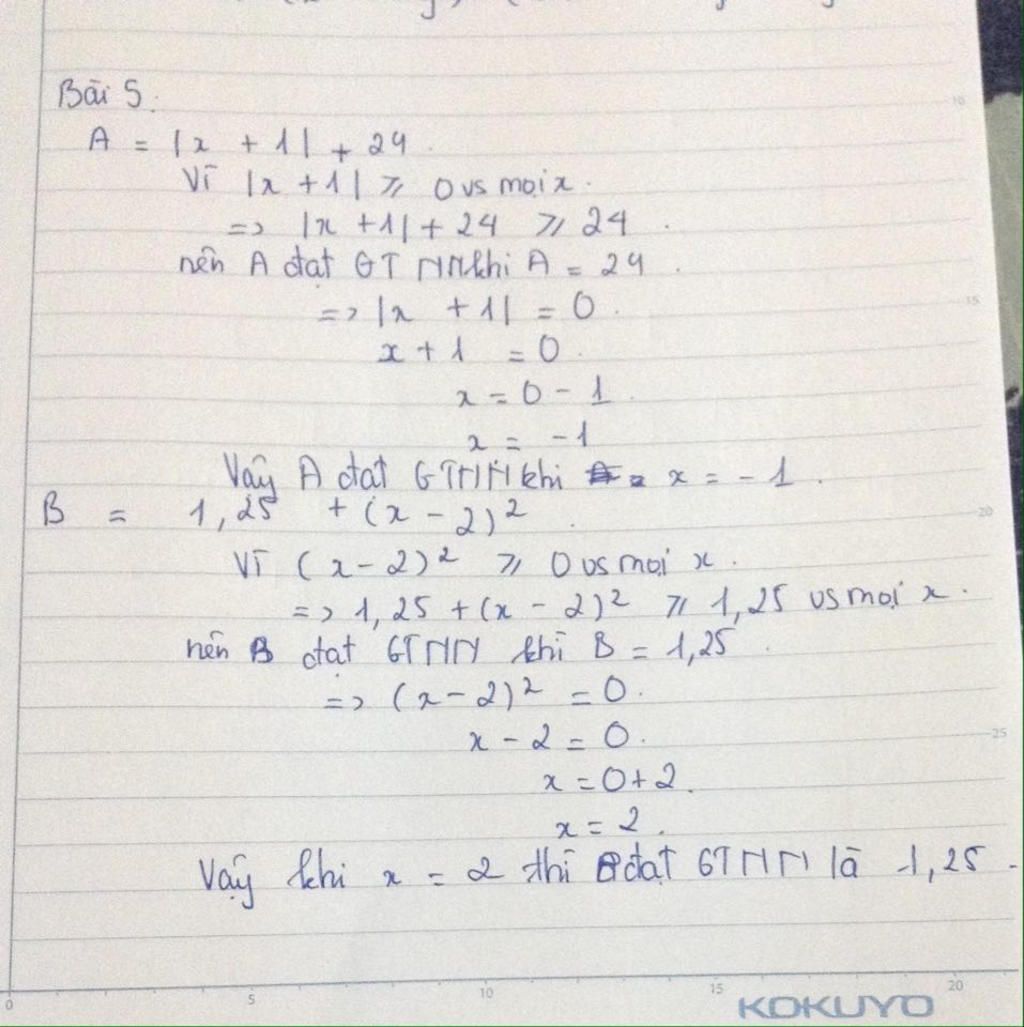 Bài 5.
A = |x + 1| + 24.
Vì |x + 1| ⩾ 0 vs mọi x.
=> |x + 1| + 24 ⩾ 24.
nên A đạt GTNN khi A = 24.
=> |x + 1| = 0.
x + 1 = 0.
x = 0 - 1.
x = -1
Vậy A đạt GTNN khi x = -1.
B = 1,25 + (x - 2)².
Vì (x - 2)² ⩾ 0 vs mọi x.
=> 1,25 + (x - 2)² ⩾ 1,25 vs mọi x.
nên B đạt GTNN khi B = 1,25.
=> (x - 2)² = 0.
x - 2 = 0.
x = 0 + 2.
x = 2.
Vậy khi x = 2 thì B đạt GTNN là 1,25.
10
15
20
25
0 5 10 15 20
KOKUYO